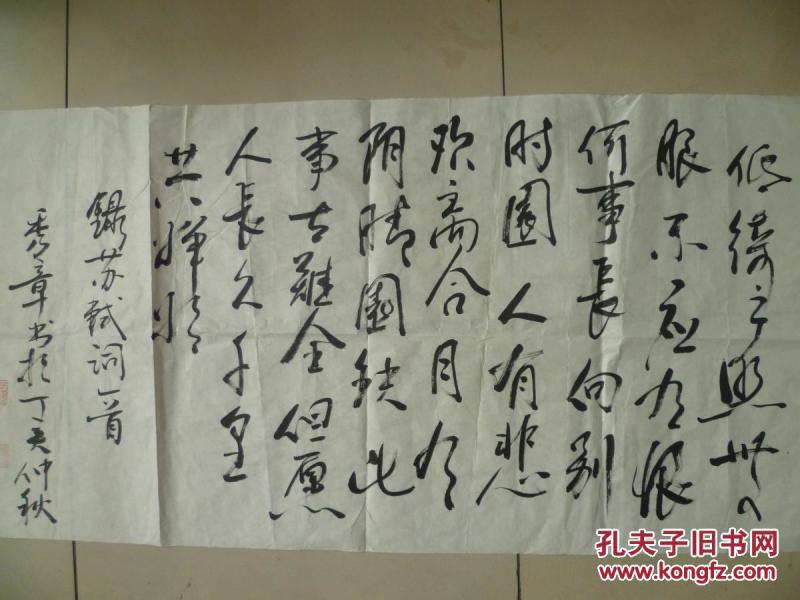 低綺户照無
眠不應有恨
何事長向别
时圓人有悲
欢离合月有
阴晴圓缺此
事古難全但愿
人長久千里
共婵娟
錄苏軾詞一首
秀章书於丁亥仲秋
孔夫子旧书网
www.kongfz.com